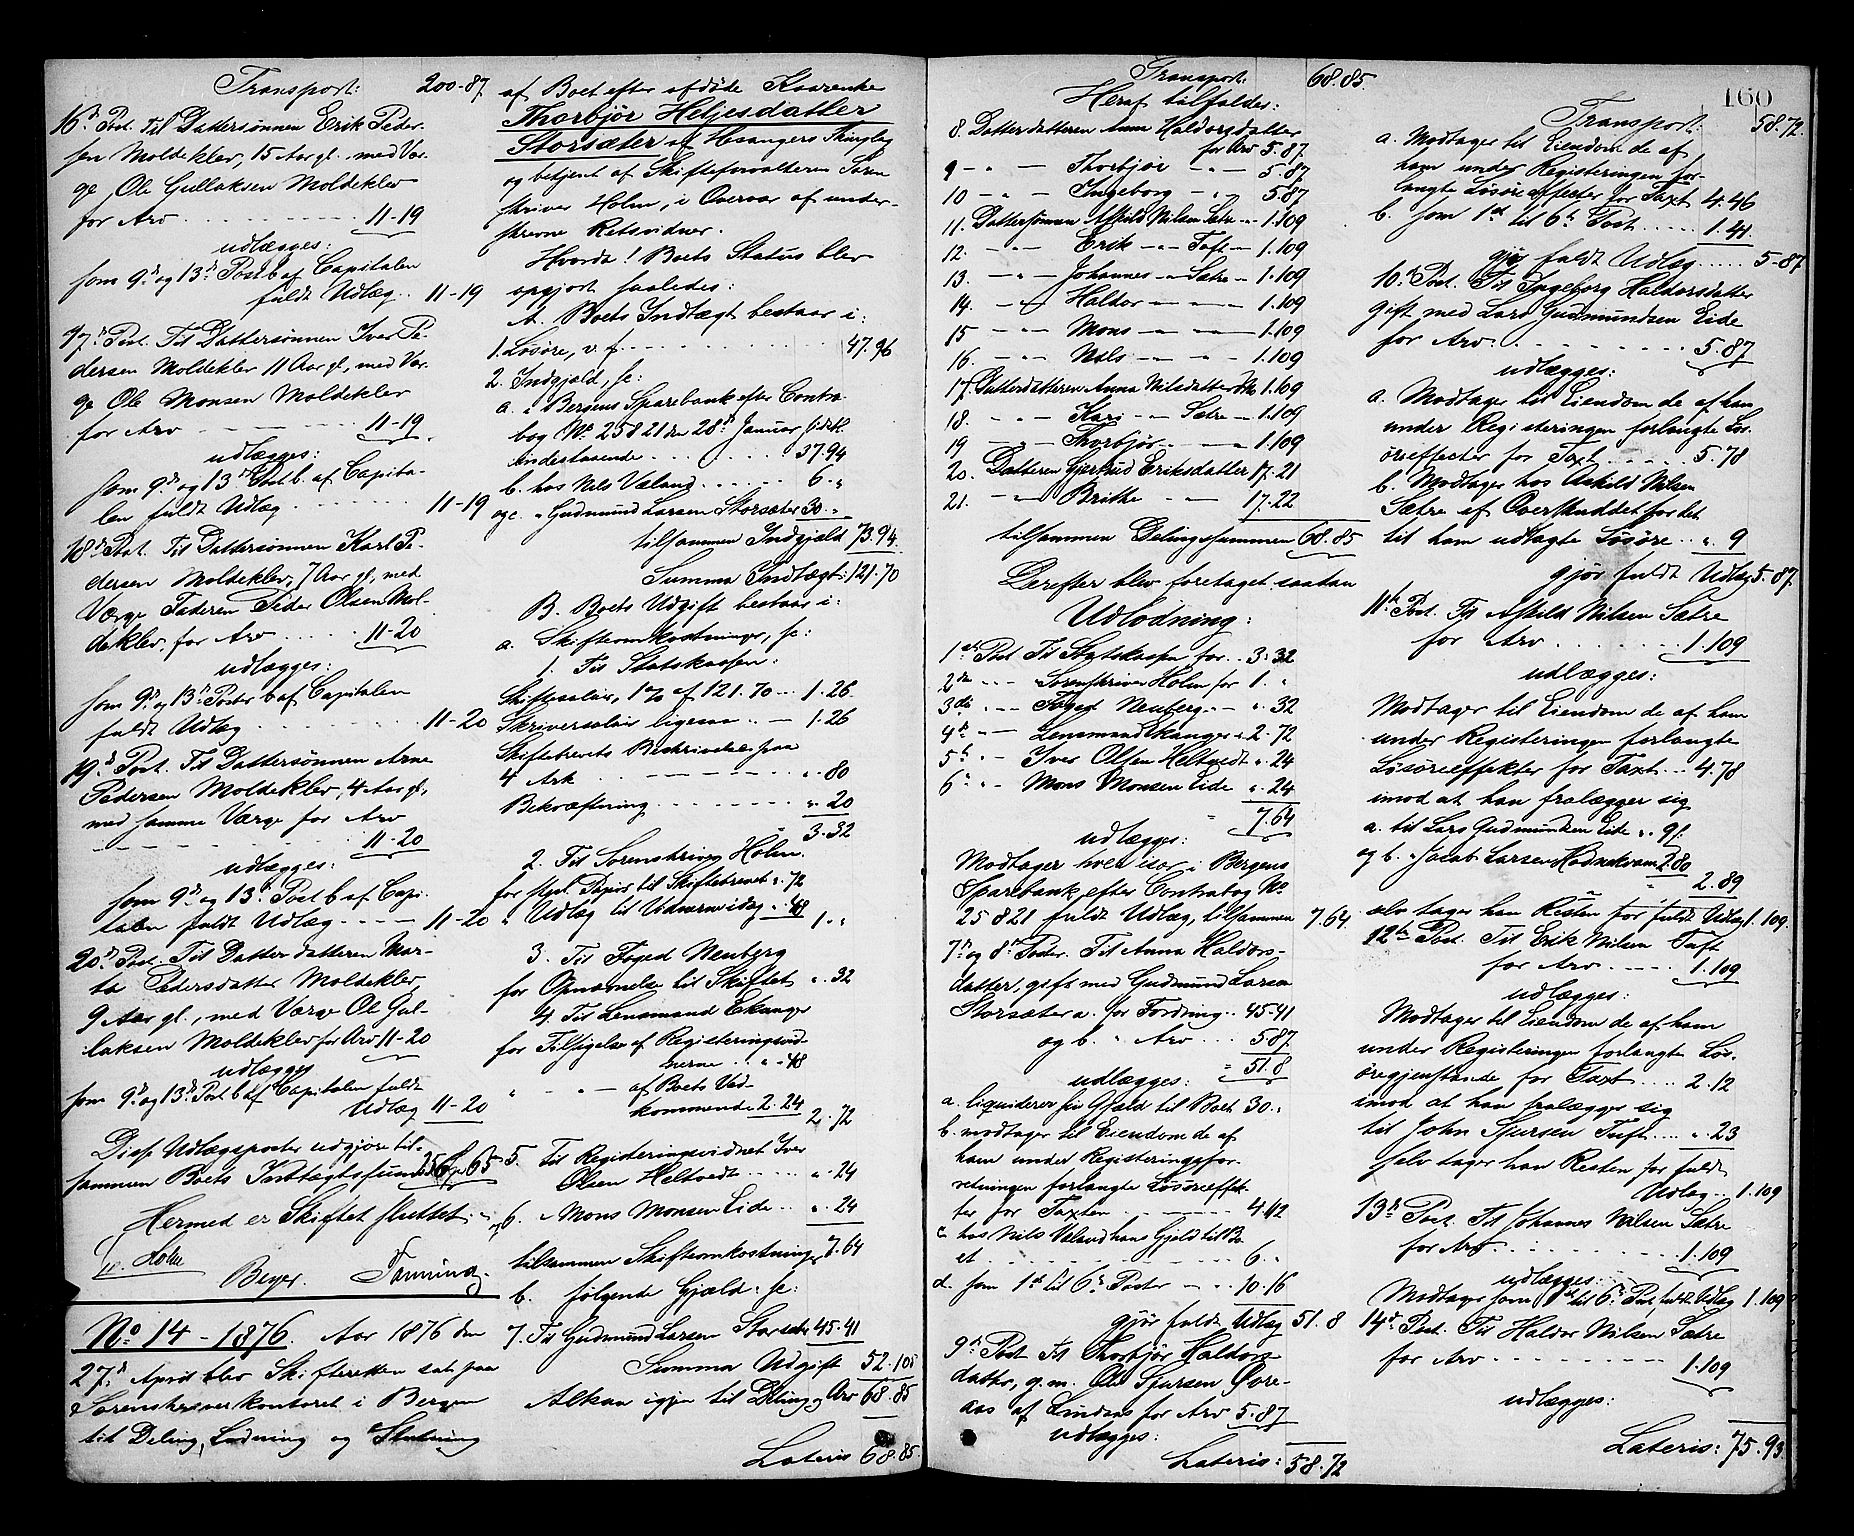 Transport: 200-87.
16d Post. Til Dattersønnen Erik Peder-
sen Moldeklev, 15 Aar gl. med Vær-
ge Ole Gullaksen Moldeklev
for Arv 11-19
udlægges:
som 9d og 13d Post b af Capitalen
fuldt Udlæg 11-19
17d Post. Til Dattersønnen Iver Pe-
dersen Moldeklev 11 Aar gl, med Vær-
ge Ole Monsen Moldeklev
for Arv 11-19
udlægges:
som 9d og 13d Post b. af Capita-
len fuldt Udlæg 11-19
18d Post. Til Dattersønnen Karl Pe-
dersen Moldeklev, 7 Aar gl, med
Værge Faderen Peder Olsen Mol-
deklev, for Arv 11-20
udlægges:
som 9d og 13d Poster b af Capitalen
fuldt Udlæg 11-20
19d Post. Til Dattersønnen Arne
Pedersen Moldeklev, 4 Aar gl,
med samme Værge for Arv
11-20
udlægges:
som 9d og 13d Post b af Capi-
talen fuldt Udlæg 11-20
20d Post. Til Datterdatteren Mar-
ta Pedersdatter Moldeklev,
9 Aar gl., med Værge Ole Gul-
laksen Moldeklev for Arv 11-20
udlægges
som 9d og 13d Post b af Capitalen fuldt
Udlæg 11-20
Disse Udlægsposter udgjøre til-
sammen Boets Indtægtssum
Hermed er Skiftet sluttet.
Holm
Beyer.
No 14 - 1876. Aar 1876 den
27d April blev Skifteretten sat paa
Sorenskriverkontoret i Bergen
til Deling, Lodning og Slutning
af Boet efter afdøde Kaarenke
Thorbjør Heljesdatter
Storsæter af Hosangers Thinglag
og betjent af Skifteforvalteren Soren
skriver Holm, i Overvær af under-
skrevne Retsvidner.
Hvorda! Boets Status blev
opgjort saaledes:
A. Boets Indtægt bestaar i:
1. Løsøre, v. f. 47.96
2. Indgjæld, se:
a. i Bergens Sparebank efter Contra
bog No 25821 den 28d Januar sidstl.
indestaaende 37.94
b. hos Nils Væland 6.„
og c. „ Gudmund Larsen Storsæter 30.„
tilsammen Indgjæld 73.94
Summa Indtægt: 121.70
B. Boets Udgift bestaar i:
a. Skifteomkostninger, se:
1. Til Statskassen:
Skiftesalair, 1% af 121.70 1.26.
Skriversalair ligesaa 1.26
Skiftebrevets Beskrivelse paa
4 Ark „ 80
Bekræftning „ 20
3.32
2. Til Sorenskriver Holm.
for stpl. Papir til Skiftebrevet „ 72
„ Udlæg til „ 48
1.„
3. Til Foged Neuberg
for Opnævnelse til Skiftet „ 32
4 Til Lensmand Ekanger
for Tilsigelse af Registeringsvid-
nerne „ 48
„ „ — af Boets Ved-
kommende 2.24
2.72
5. Til Registeringsvidnet Iver
Olsen Heltvedt „ 24
og 6. „ Mons Monsen Eide „ 24
tilsammen Skifteomkostninger 7.64
b. følgende Gjæld: se:
7. Til Gudmund Larsen Storsæter 45.41
Summa Udgift 52.105
Altsaa igjen til Deling Arv 68.85
Lateris 68.85.
Transport: 68.85.
Heraf tilfalder:
8. Datterdatteren Anna Haldorsdatter
for Arv 5.87
9 — „ — Thorbjør — „ — 5.87
10 — „ — Ingeborg — „ — 5.87
11. Dattersønnen Askild Nilsen Sætre „ 1.109
12. — „ — Erik — „ — Tuft — 1.109
13. — „ — Johannes — „ Sætre — 1.109
14. — „ — Haldor — „ — 1.109
15 — „ — Mons — „ — 1.109
16. — „ — Nils — „ — 1.109
17. Datterdatteren Anna Nilsdatter 1.109
18. — „ — Kari — „ — Sætre — 1.109
19 — „ — Thorbjør — „ — 1.109
20. Datteren Gjertrud Eriksdatter 17.21
21. — „ — Britke — „ — 17.22
tilsammen Delingssummen 68.85
Derefter blev foretaget saadan
Udlodning:
1ste Post Til Statskassen for 3.32
2den „ — Sorenskriver Holm for 1.„
3die „ — Foged Neuberg — „ — „ 32
4de „ — Lensmand Ekanger „ 2.72
5te „ — Iver Olsen Heltvedt „ 24
6te „ — Mons Monsen Eide „ 24
7.64
udlægges:
Modtager hver især i Bergens
Sparebank efter Contrabog No
25821 fuldt Udlæg, tilsammen 7.64.
7d og 8d Poster. Til Anna Haldors-
datter, gift med Gudmund Larsen
Storsæter a. for Fordring 45-41
og b. „ Arv 5.87.
51.8
udlægges:
a. liquiderer sin Gjæld til Boet 30.„
b. modtager til Eiendom de af
ham under Registeringsfor-
retningen forlangte Løsøreeffek-
ter for Taxten 4.112
c hos Nils Væland hans Gjæld til Bo
et 6.„
d. som 1ste til 6te Poster 10.16
gjør fuldt Udlæg 51.8
9de Post Til Thorbjør Haldors-
datter, g. m. Ole Sjursen Øvre-
aas af Lindaas for Arv 5.87
udlægges:
Lateris: 58.72
160
Transport: 58.72.
a. Modtager til Eiendom de af
ham under Registeringen for-
langte Løsøreeffecter for Taxt 4.46
b. som 1ste til 6te Post 1.41.
gjør fuldt Udlæg 5-87
10de Post. Til Ingeborg Haldorsdatter
gift med Lars Gudmundsen Eide
for Arv 5.87
udlægges:
a. Modtager til Eiendom de af ham
under Registeringen forlangte Løs-
øreeffecter for Taxt 5.78
b. Modtager hos Askild Nilsen
Sætre af Overskuddet for det
til ham udlagte Løsøre „ 9
gjør fuldt Udlæg 5.87.
11te Post. Til Askild Nilsen Sætre
for Arv 1.109
udlægges:
Modtager til Eiendom de af ham
under Registeringen forlangte
Løsøreeffekter for Taxt 4.78
imod at han fralægger sig
a. til Lars Gudmundsen Eide „ 9.
og b. „ Jacob Larsen Hodnekvam 2.80
2.89
selv tager han Resten for fuldt Udlæg 1.109
12te Post. Til Erik Nilsen Tuft
for Arv 1.109
udlægges:
Modtager til Eiendom de af ham
under Registeringen forlangte Løs-
øregjenstande for Taxt 2.12
imod at han fralægger sig
til John Sjursen Tuft „ 23
selv tager han Resten for fuldt
Udlæg 1.109
13de Post. Til Johannes Nilsen Sætre
for Arv 1.109
udlægges:
Modtager som 1ste til 6te Post fuldt Udlæg 1.109
14de Post. Til Haldor Nilsen Sætre
for Arv 1.109
udlægges:
Lateris: 75.93.